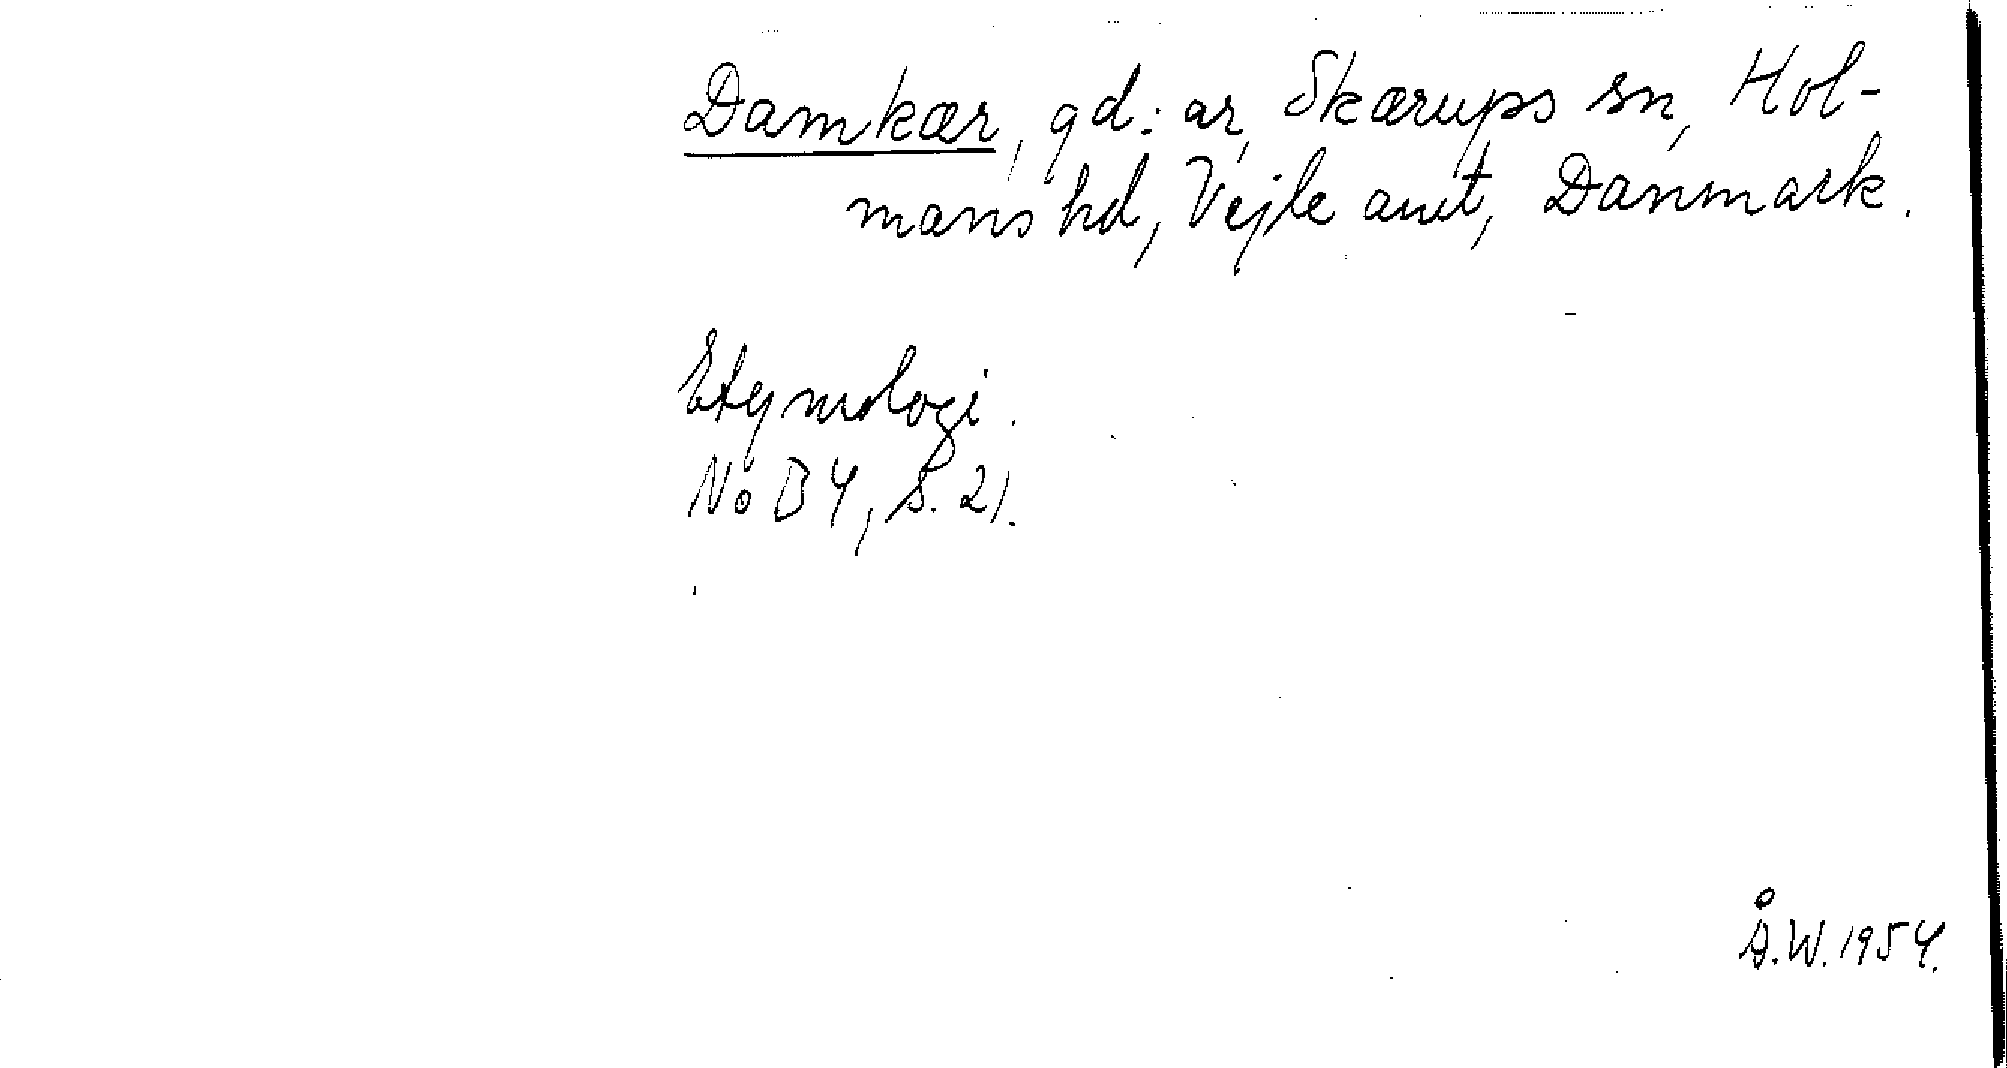 Damkær, gd:ar, Skærups sn, Hol-
mans hd, Vejle amt, Danmark.
Etymologi.
NoB 4, s. 21.
Å.W. 1954.